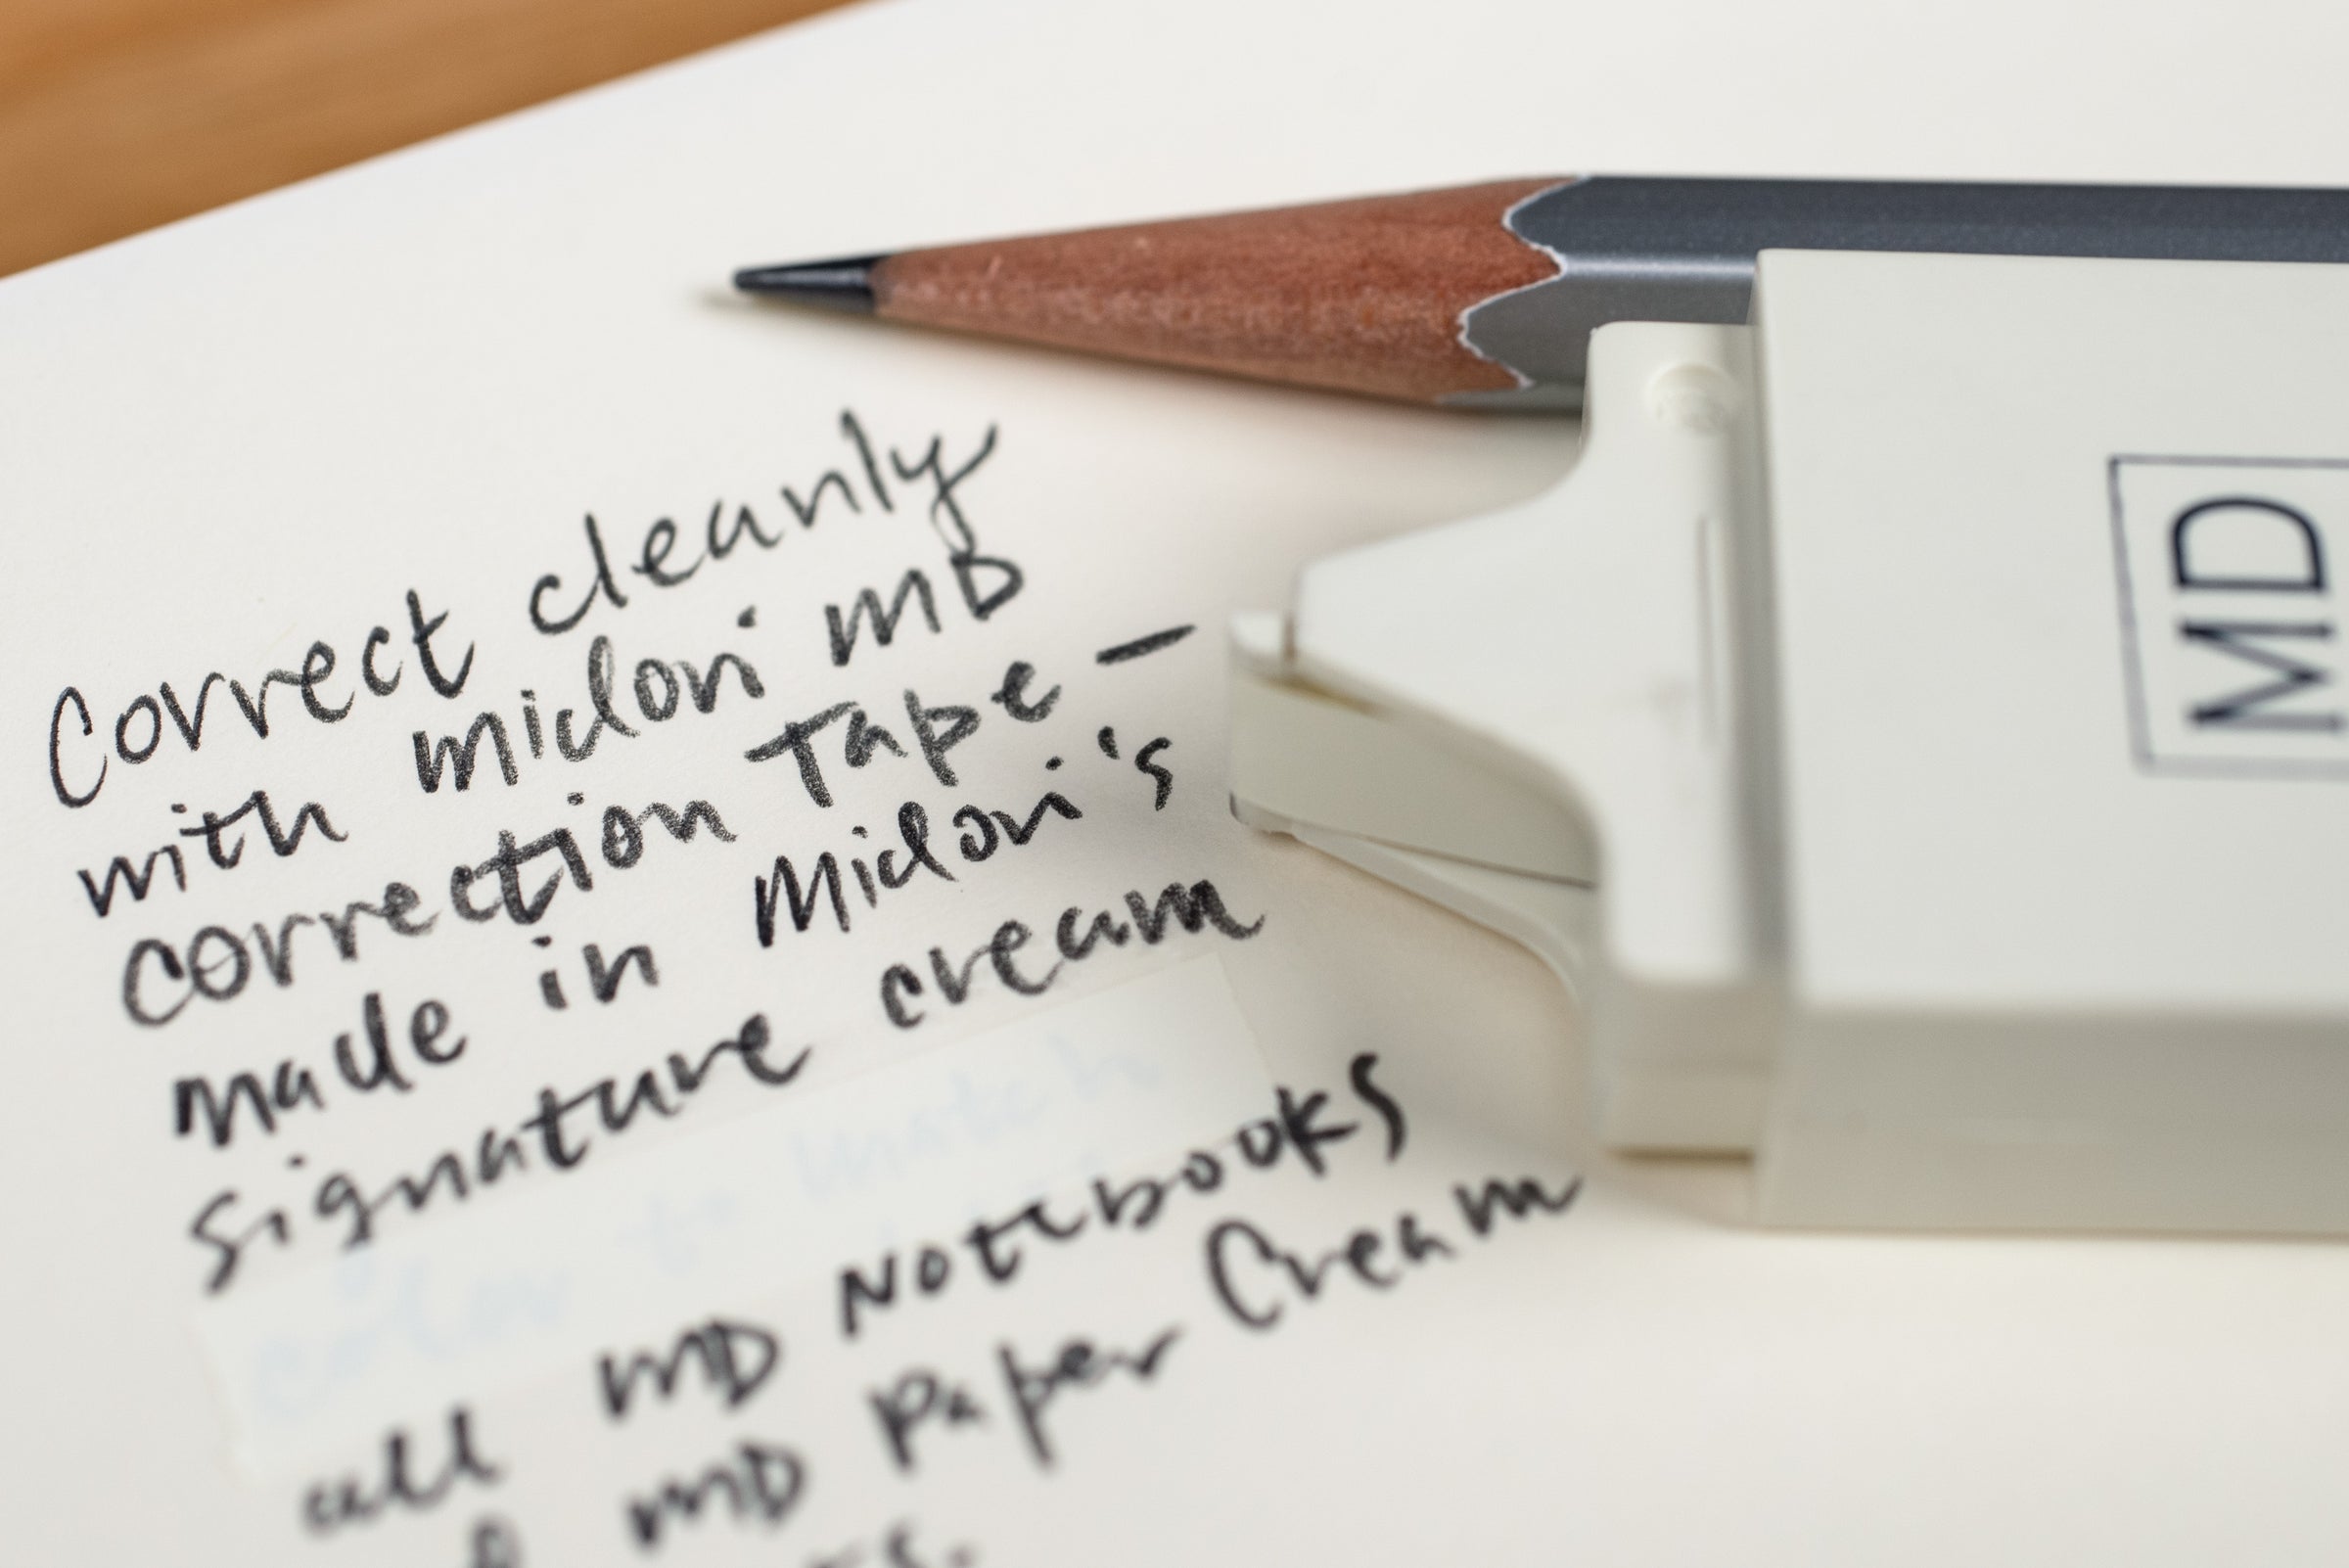 Correct cleanly
with midori MD
correction Tape –
made in Midori's
signature cream
color to match
all MD Notebooks
MD Paper Cream
MD